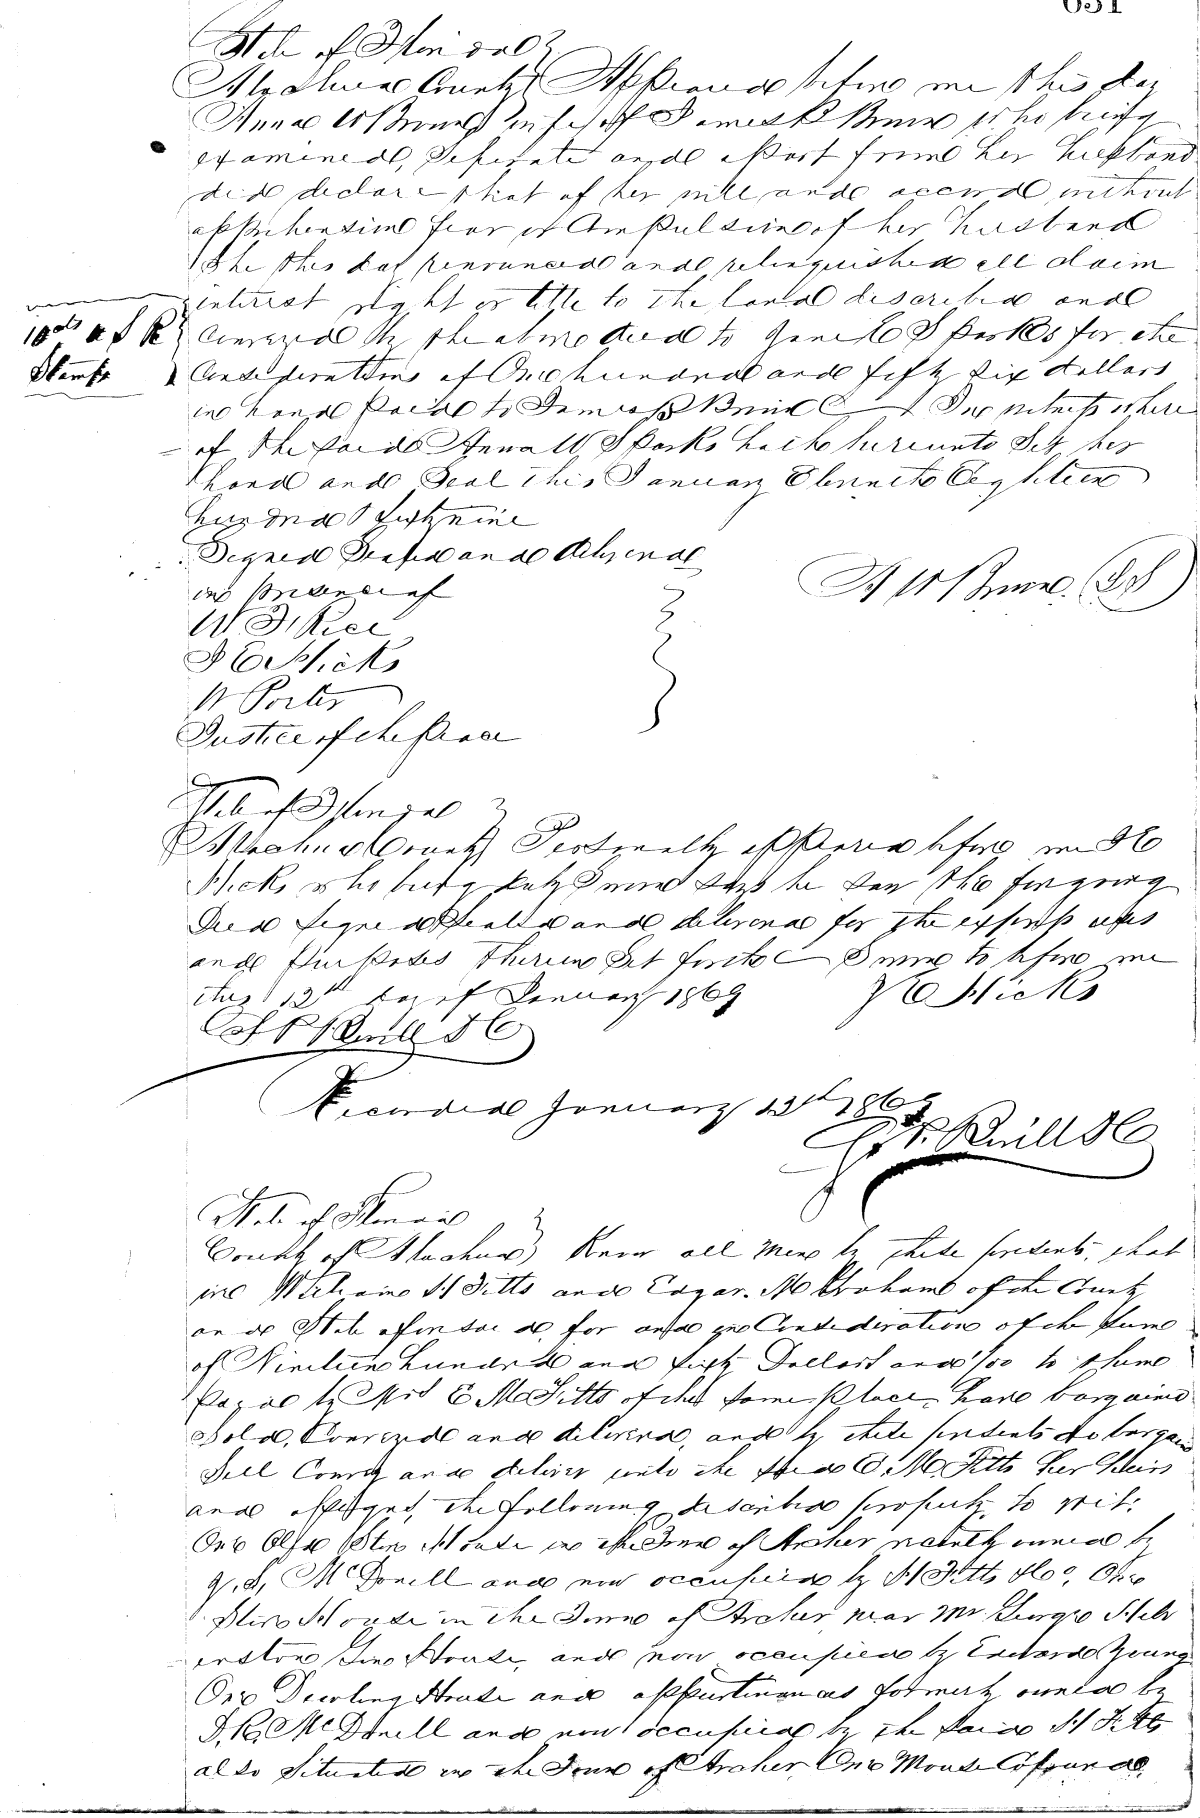 631
State of Florida
Alachua County Appeared before me this day
Anna W Brown wife of James B Brown who being
examined, seperate and apart from her husband
did declare that of her will and accord without
apprehension fear or Compulsion of her husband
She this day renounced and relinquished all claim
interest right or title to the land described and
10cts R
Stamps
Conveyed by the above deed to Sparks for the
Consideration of One hundred and fifty six dollars
in hand paid to James B In witness where
of the said Anna W Sparks hath hereunto Set her
hand and Seal this January Eleventh Eighteen
hundred & sixty nine
Signed Sealed and delivered
in presence of
A W Brown (LS)
W Rice
Hicks
W Porter
Justice of the Peace
State of Florida
Alachua County Personally appeared before me
Hicks who being duly Sworn says he Saw the foregoing
Deed Signed Sealed and delivered for the express uses
and purposes therein Set forth Sworn to before me
this 12th day of January 1869
Hicks
Recorded January 12th 1869
State of Florida
County of Alachua Know all Men by these presents, that
we William H Fitts and Edgar. M Graham of the County
and State aforesaid, for and in Consideration of the Sum
of Nineteen hundred and fifty Dollars and /100 to
paid by Mrs E. M. Fitts of the same place, have bargained
Sold, Conveyed and delivered, and by these presents do bargain
Sell Convey and deliver unto the said E. M. Fitts her heirs
and assigns, the following described property, to wit:
One Old Store House in the Town of Archer recently owned by
McDonell and now occupied by H Fitts &Co, One
Store House in the Town of Archer, near Mr George
Gin House, and now occupied by Edward Young
One Dwelling House and appurtinances formerly owned by
McDonell and now occupied by the said H Fitts
also Situated in the Town of Archer, One Mouse Colored